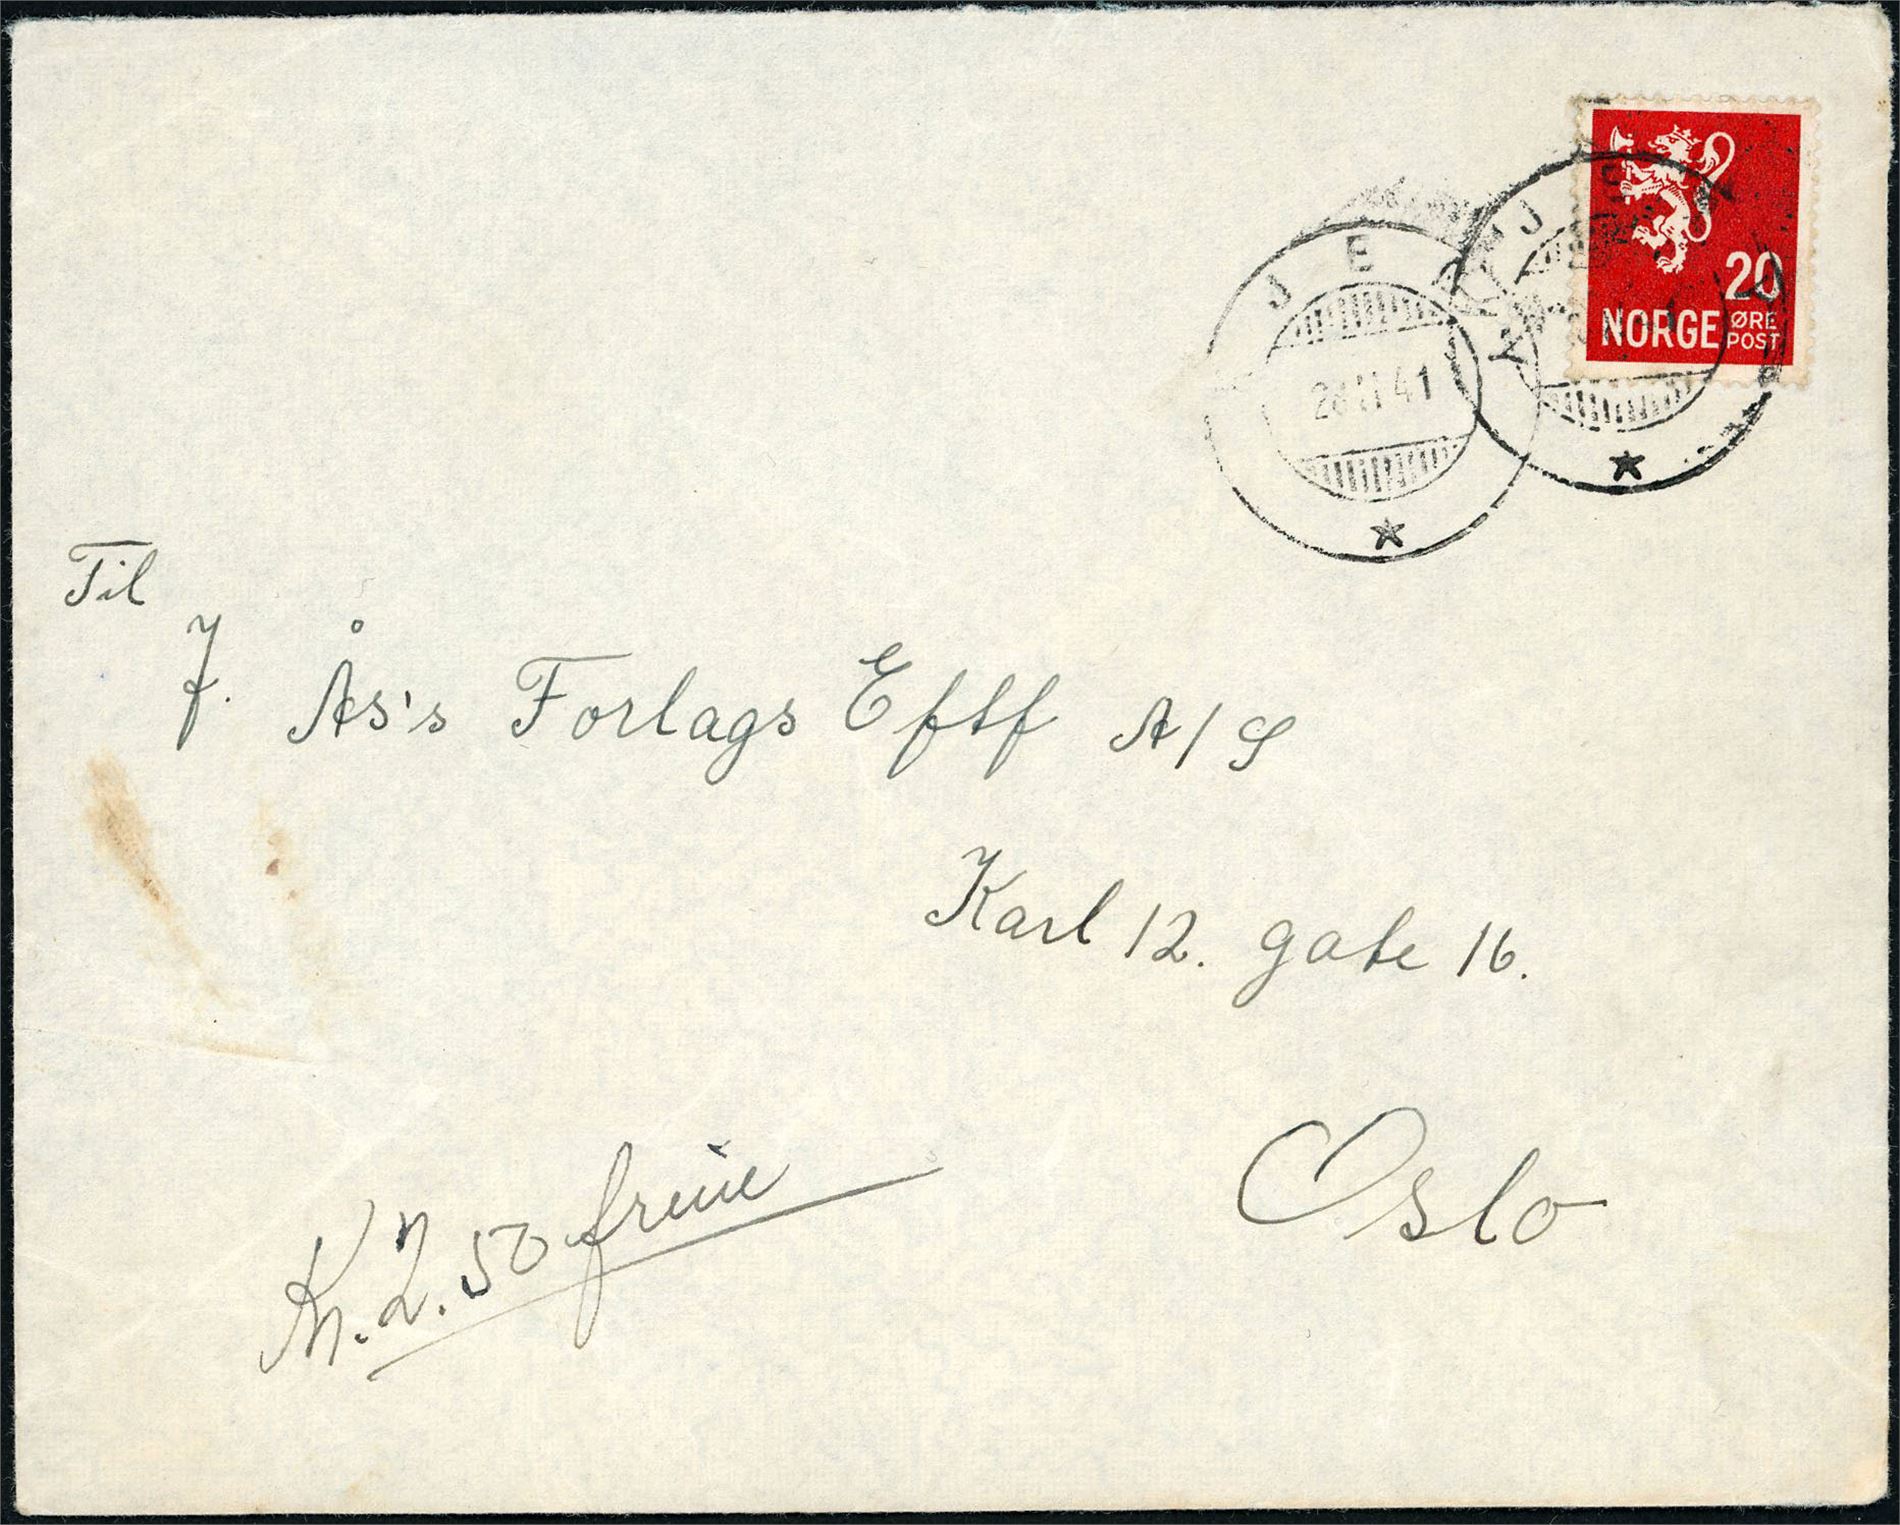 20
NORGE ØRE POST
26 II 41
Til
J. Ås's Forlags Eftf A/S
Karl 12. gate 16.
Oslo
Kr. 2.50 freiie